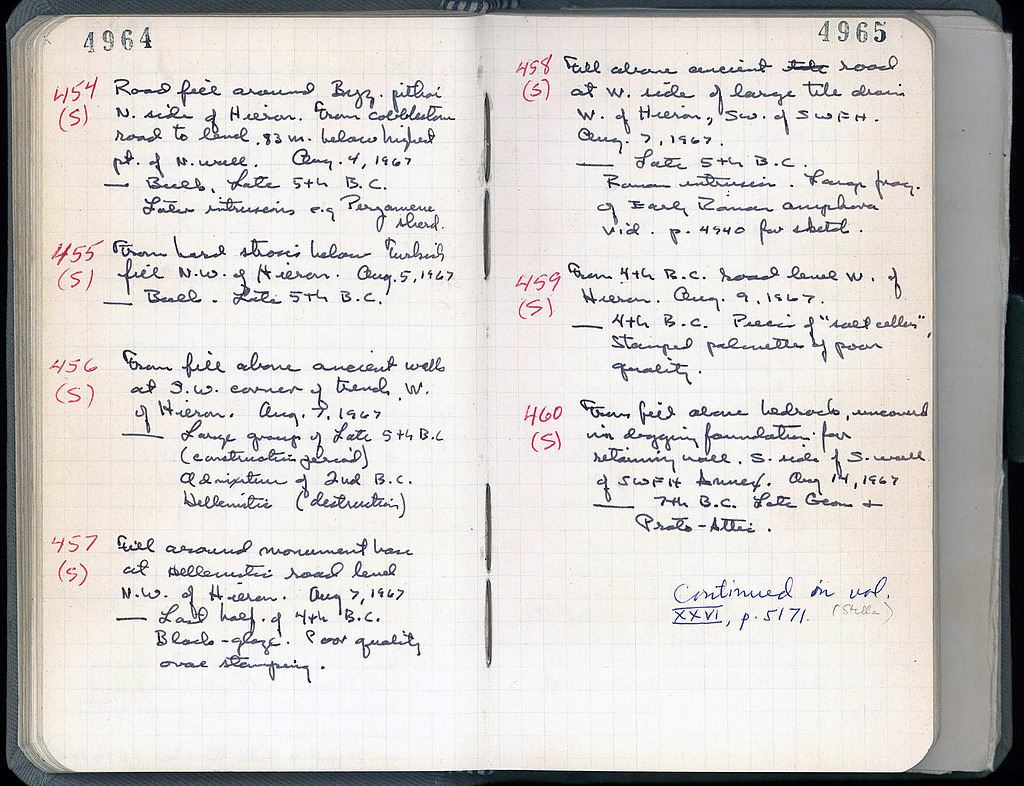 4964
454 Road fill around Byz. pithoi
(S) N. side of Hieron. From cobblestone
road to level .83 m. below highest
pt. of N. wall. Aug. 4, 1967
— Bulk. Late 5th B.C.
Later intrusions e.g. Pergamene
sherd.
455 From hard strosis below Turkish
(S) fill N.W. of Hieron. Aug. 5, 1967
— Bulk. Late 5th B.C.
456 From fill above ancient wells
(S) at S.W. corner of trench, W.
of Hieron. Aug. 7, 1967
— Large group of Late 5th B.C.
(construction period)
Admixture of 2nd B.C.
Hellenistic (destruction)
457 Fill around monument base
(S) at Hellenistic road level
N.W. of Hieron. Aug 7, 1967
— Last half of 4th B.C.
Black-glaze. Poor quality
ovae stamping.
4965
458 Fill above ancient road
(S) at W. side of large tile drain
W. of Hieron, SW. of SWFH.
Aug. 7, 1967.
— Late 5th B.C.
Roman intrusion. Large frag.
of Early Roman amphora
vid. p. 4940 for sketch.
459 From 4th B.C. road level W. of
(S) Hieron. Aug. 9, 1967.
— 4th B.C. Piece of "salt cellar",
Stamped palmettes of poor
quality.
460 From fill above bedrock, uncovered
(S) in digging foundation for
retaining wall. S. side of S. wall
of SWFH Annex. Aug 14, 1967
— 7th B.C. Late Geom +
Proto-Attic.
Continued in vol.
XXVI, p. 5171. (Stella)